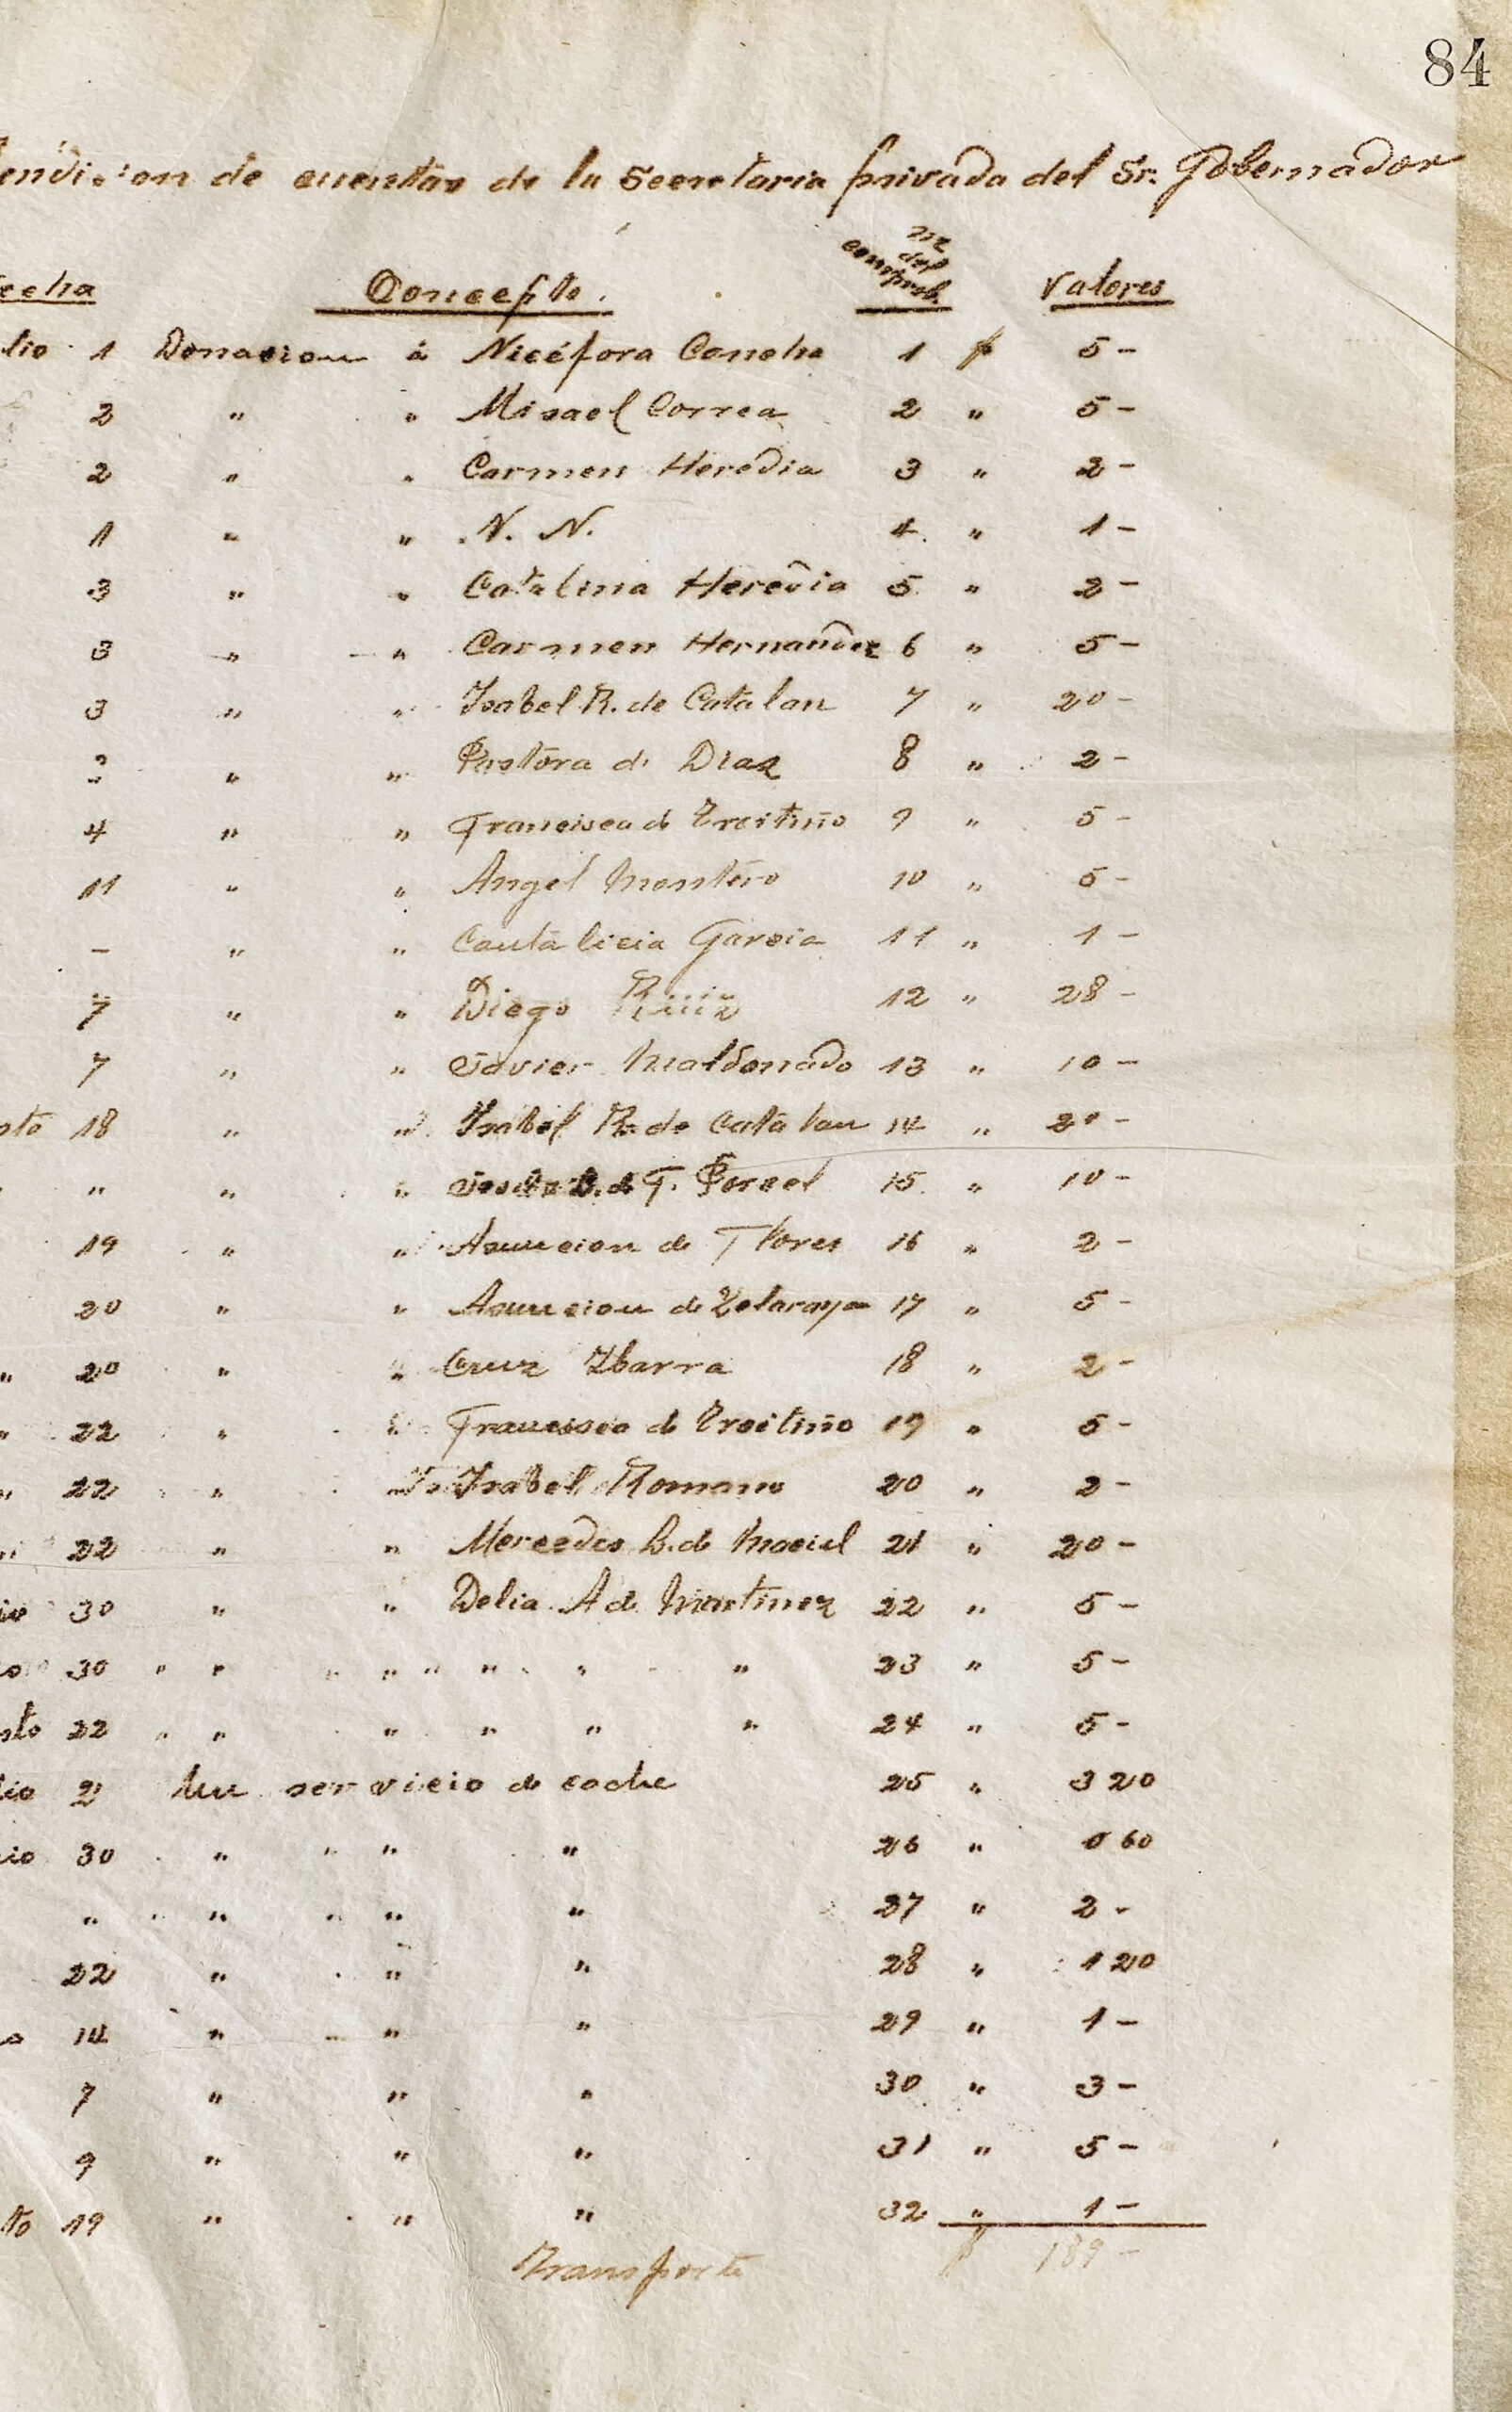 84
endicion de cuentas de la Secretaria privada del Sr. Gobernador
echa Concepto. Nº del comprob. Valores
lio 1 Donacion á Nicéfora Concha 1 $ 5 -
2 " " Misael Correa 2 " 5 -
2 " " Carmen Heredia 3 " 2 -
1 " " N. N. 4 " 1 -
3 " " Catalina Heredia 5 " 2 -
3 " " Carmen Hernandez 6 " 5 -
3 " " Isabel R. de Catalan 7 " 20 -
" " Pastora de Diaz 8 " 2 -
4 " " Francisca de Troitiño 9 " 5 -
11 " " Angel Montero 10 " 5 -
- " " Cantalicia Garcia 11 " 1 -
7 " " Diego Ruiz 12 " 28 -
7 " " Javier Maldonado 13 " 10 -
sto 18 " " Isabel R. de Catalan 14 " 20 -
" " " " B. de F. Porcel 15 " 10 -
19 " " Asuncion de Flores 16 " 2 -
20 " " Asuncion de Zelaraya 17 " 5 -
" 20 " " Cruz Ibarra 18 " 2 -
" 22 " " Francisca de Troitiño 19 " 5 -
" 22 " " Isabel Romano 20 " 2 -
" 22 " " Mercedes B. de Maciel 21 " 20 -
io 30 " " Delia A de Martinez 22 " 5 -
io 30 " " " " " " " " 23 " 5 -
sto 22 " " " " " " 24 " 5 -
lio 2 Un servicio de coche 25 " 3 20
io 30 " " " " 26 " 0 60
" " " " " 27 " 2 -
22 " " " 28 " 1 20
o 14 " " " " 29 " 1 -
7 " " " 30 " 3 -
9 " " " 31 " 5 -
to 19 " " " 32 " 1 -
Transporte $ 189 -